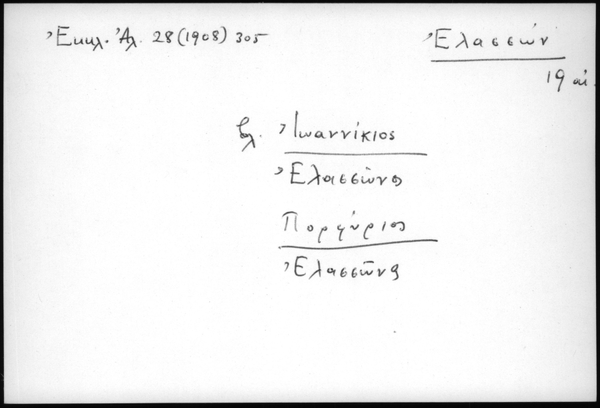 Ἐκκλ. Ἀλ. 28 (1908) 305
Ἐλασσών
19 αἰ.
βλ. Ἰωαννίκιος
Ἐλασσῶνος
Πορφύριος
Ἐλασσῶνος